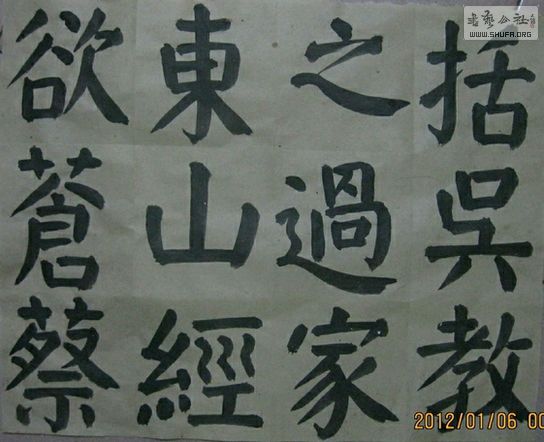 括吳教
之過家
東山經
欲蒼蔡
书艺公社
WWW.SHUFA.ORG
2012/01/06 00